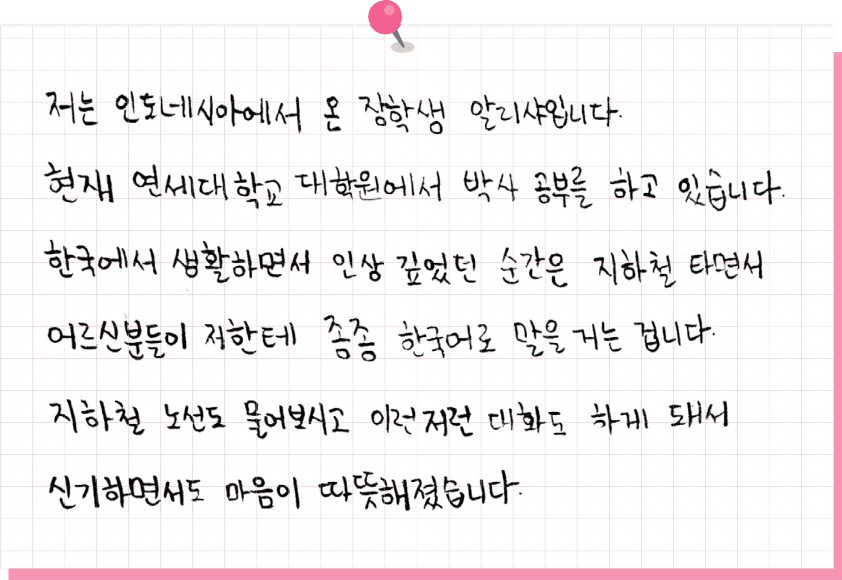 저는 인도네시아에서 온 장학생 알리샤입니다.
현재 연세대학교 대학원에서 박사 공부를 하고 있습니다.
한국에서 생활하면서 인상 깊었던 순간은 지하철 타면서
어르신분들이 저한테 종종 한국어로 말을 거는 겁니다.
지하철 노선도 물어보시고 이런저런 대화도 하게 돼서
신기하면서도 마음이 따뜻해졌습니다.